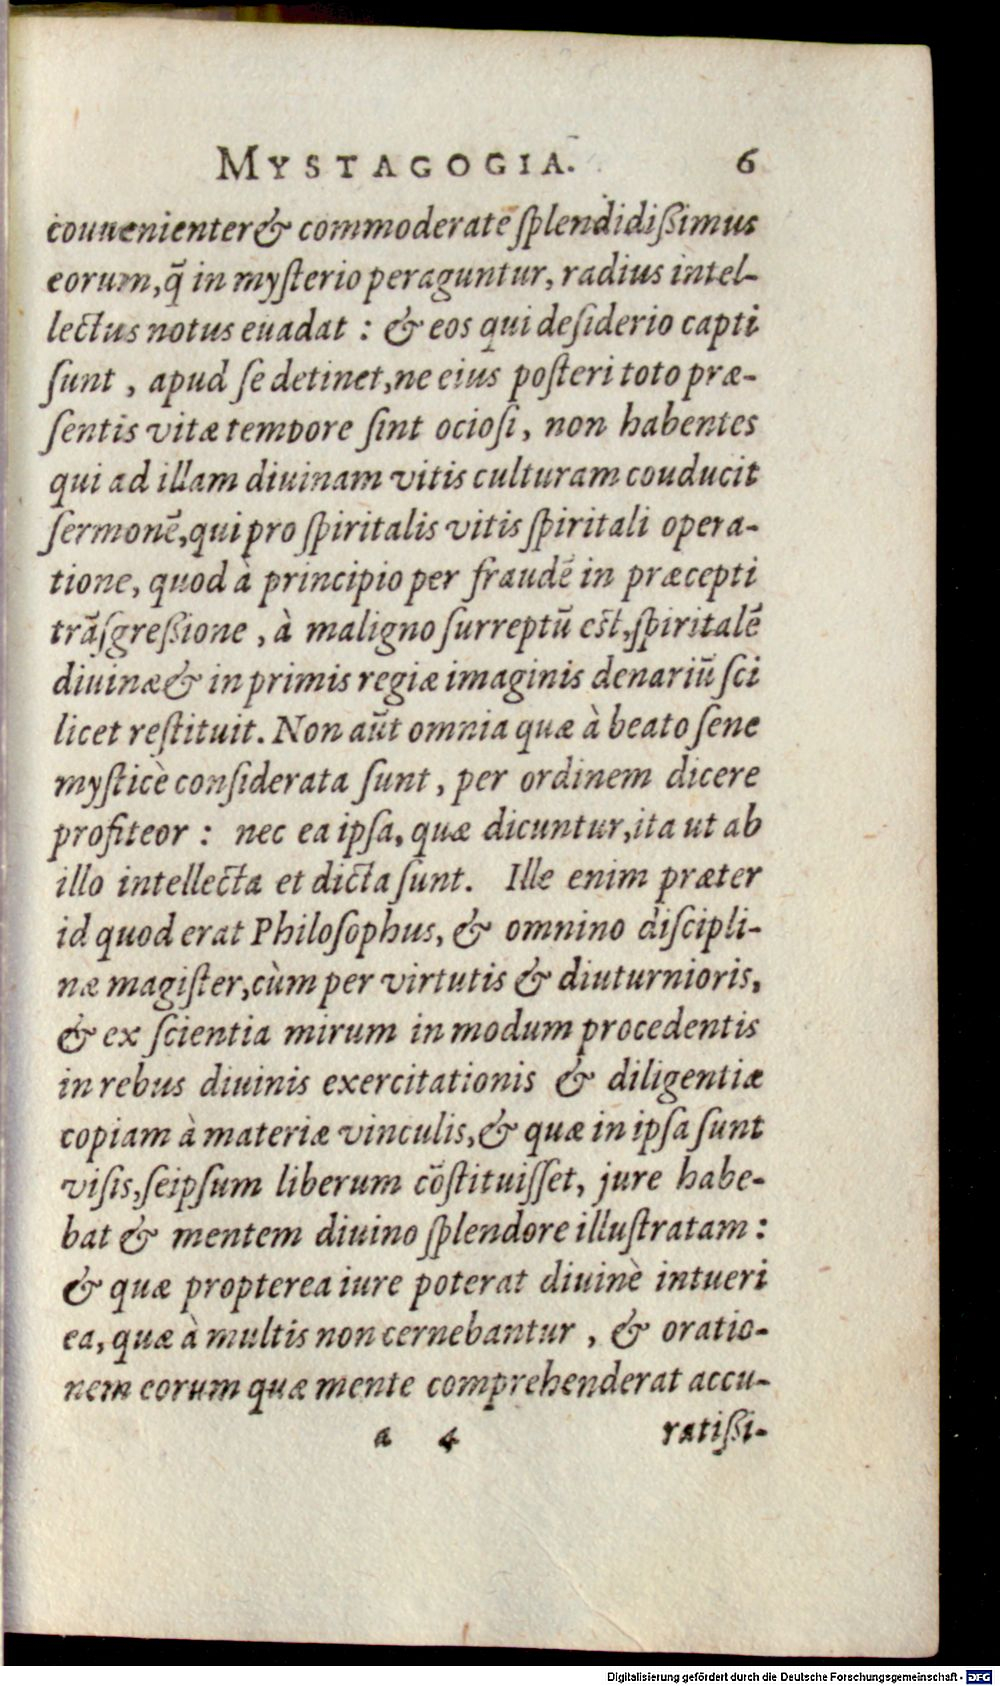 MYSTAGOGIA. 6
conuenienter & commoderatè ſplendidißimus
eorum, q̃ in myſterio peraguntur, radius intel-
lectus notus euadat : & eos qui deſiderio capti
ſunt , apud ſe detinet, ne eius poſteri toto præ-
ſentis vitæ tempore ſint ocioſi, non habentes
qui ad illam diuinam vitis culturam couducit
ſermonē, qui pro ſpiritalis vitis ſpiritali opera-
tione, quod à principio per fraudē in præcepti
trāſgreßione , à maligno surreptū eſt, ſpiritalē
diuinæ & in primis regiæ imaginis denariū ſci
licet reſtituit. Non aūt omnia quæ à beato ſene
myſticè conſiderata ſunt , per ordinem dicere
profiteor : nec ea ipſa, quæ dicuntur, ita ut ab
illo intellecta et dicta ſunt. Ille enim præter
id quod erat Philoſophus, & omnino diſcipli-
næ magiſter, cùm per virtutis & diuturnioris,
& ex ſcientia mirum in modum procedentis
in rebus diuinis exercitationis & diligentiæ
copiam à materiæ vinculis, & quæ in ipſa ſunt
viſis, ſeipſum liberum cōſtituiſſet, jure habe-
bat & mentem diuino ſplendore illuſtratam :
& quæ propterea iure poterat diuinè intueri
ea, quæ à multis non cernebantur , & oratio-
nem eorum quæ mente comprehenderat accu-
a 4 ratißi-
Digitalisierung gefördert durch die Deutsche Forschungsgemeinschaft - DFG